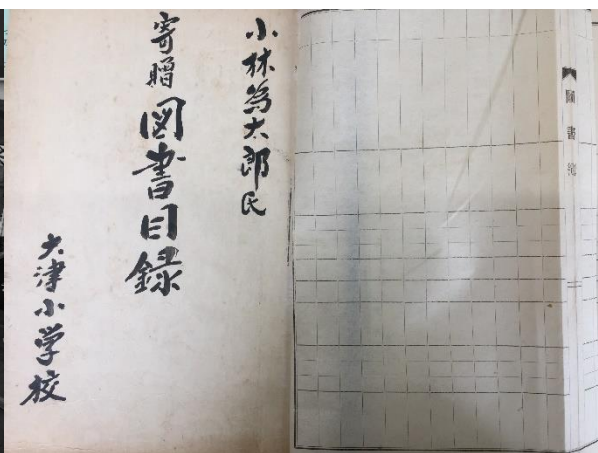 圖書
小林為太郎氏
寄贈図書目録
大津小学校